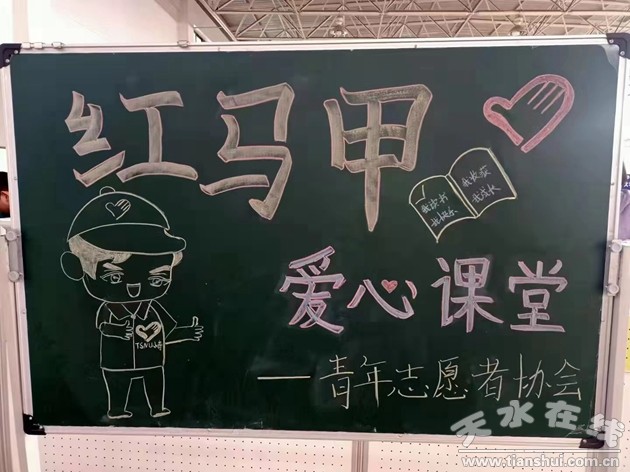 红马甲
我读书 我收获
我快乐 我成长
爱心课堂
TSNU
——青年志愿者协会
天水在线
www.tianshui.com.cn